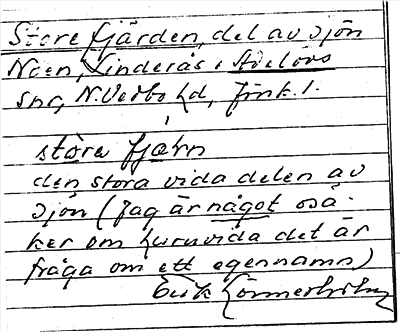 Store fjärden, del av sjön
Noen, Linderås o Adelövs
snr, N. Vedbo hd, Jönk. l.
stora fjæʀn
den stora vida delen av
sjön (Jag är något osä-
ker om huruvida det är
fråga om ett egennamn)
Erik